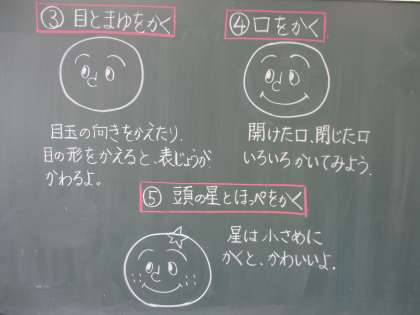 ③ 目とまゆをかく
目玉の向きをかえたり、
目の形をかえると、表じょうが
かわるよ。
④ 口をかく
開けた口、閉じた口
いろいろかいてみよう。
⑤ 頭の星とほっぺをかく
星は小さめに
かくと、かわいいよ。